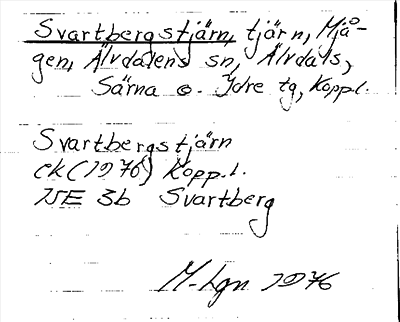 Svartbergstjärn, tjärn, Mjå-
gen, Älvdalens sn, Älvdals,
Särna o. Idre tg, Koppl.
Svartbergstjärn
ek (1976) Kopp.l.
15E 3b Svartberg
M-Lgn 1976